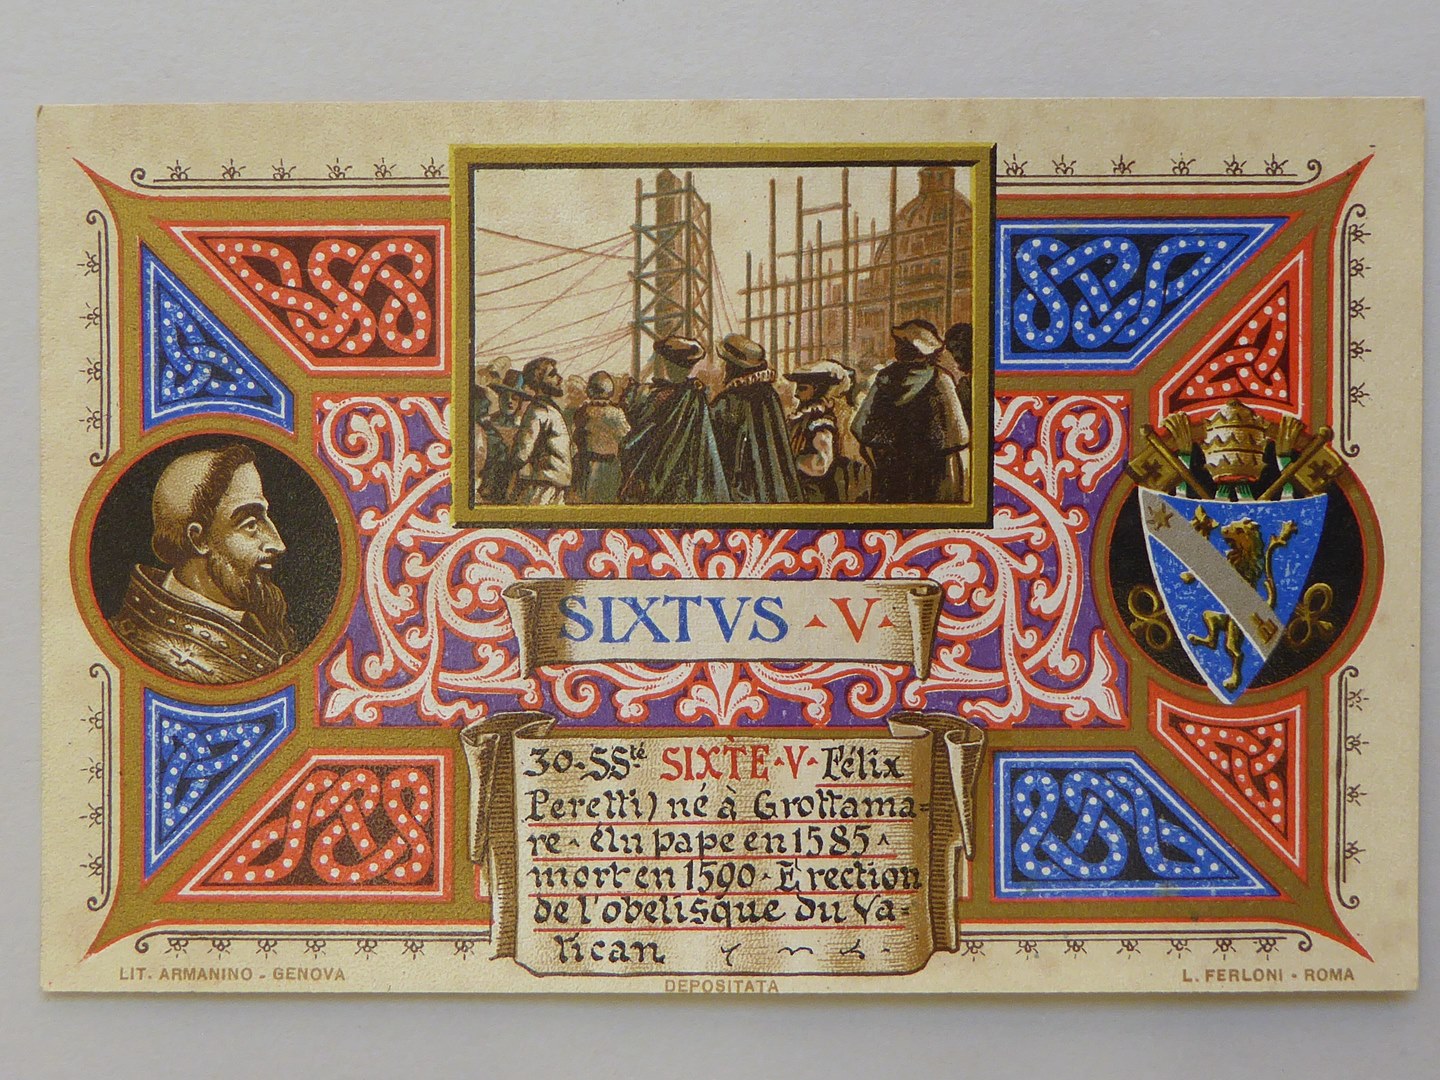 SIXTVS · V ·
30 · SSté SIXTE · V · Félix
Peretti) né à Grottama=
re · élu pape en 1585 ·
mort en 1590 · Erection
de l'obelisque du Va-
tican
LIT. ARMANINO - GENOVA
DEPOSITATA
L. FERLONI - ROMA